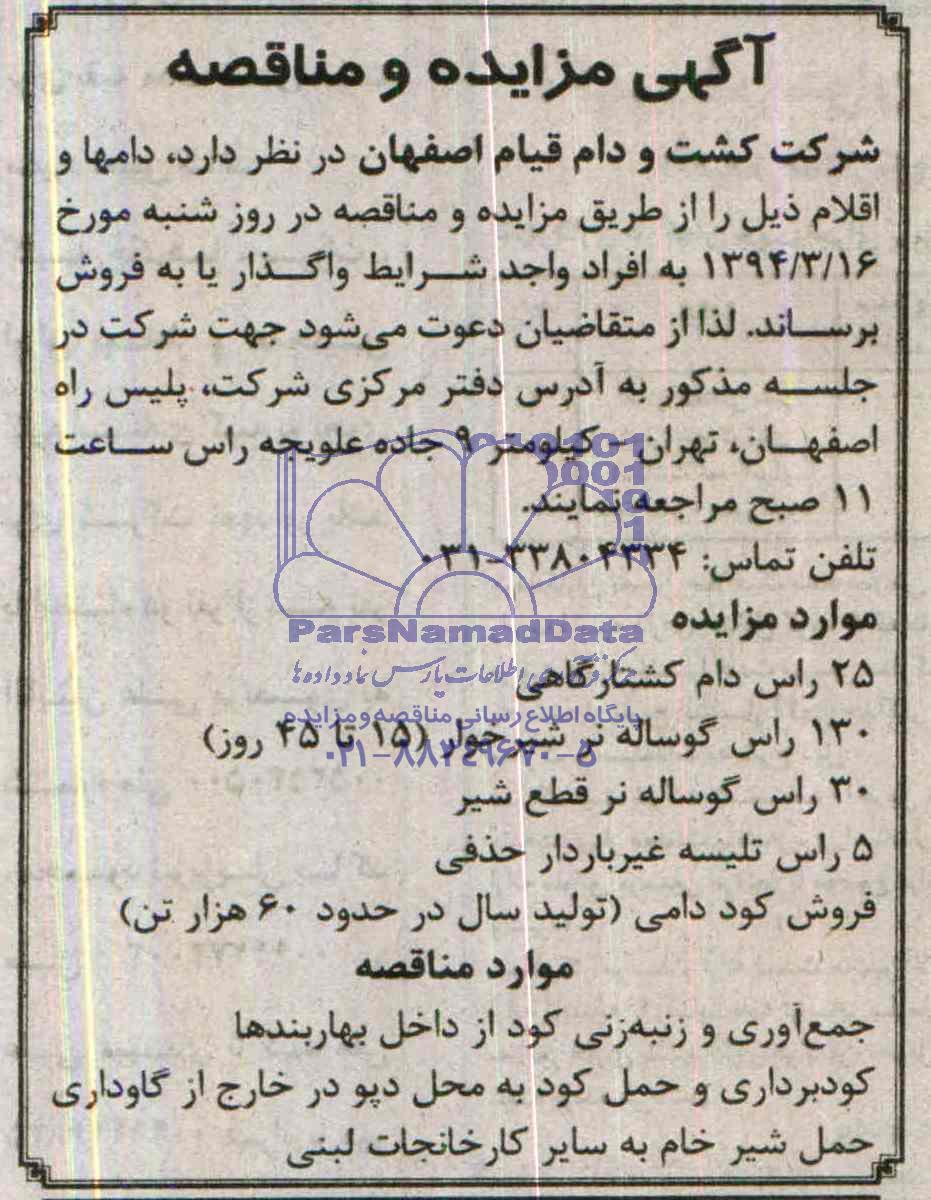 آگهی مزایده و مناقصه
شرکت کشت و دام قیام اصفهان در نظر دارد، دامها و
اقلام ذیل را از طریق مزایده و مناقصه در روز شنبه مورخ
۱۳۹۴/۳/۱۶ به افراد واجد شرایط واگذار یا به فروش
برساند. لذا از متقاضیان دعوت می‌شود جهت شرکت در
جلسه مذکور به آدرس دفتر مرکزی شرکت، پلیس راه
اصفهان، تهران - کیلومتر ۹ جاده علویجه راس ساعت
۱۱ صبح مراجعه نمایند.
تلفن تماس: ۳۳۸۰۴۳۳۴-۰۳۱
موارد مزایده
ParsNamadData
۲۵ راس دام کشتارگاهی
مرکز فرآوری اطلاعات پارس نماد داده ها
پایگاه اطلاع رسانی مناقصه و مزایده
۱۳۰ راس گوساله نر شیرخوار (۱۵ تا ۴۵ روز)
۰۲۱-۸۸۳۴۹۶۷۰-۵
۳۰ راس گوساله نر قطع شیر
۵ راس تلیسه غیرباردار حذفی
فروش کود دامی (تولید سال در حدود ۶۰ هزار تن)
موارد مناقصه
جمع‌آوری و زنبه‌زنی کود از داخل بهاربندها
کودبرداری و حمل کود به محل دپو در خارج از گاوداری
حمل شیر خام به سایر کارخانجات لبنی